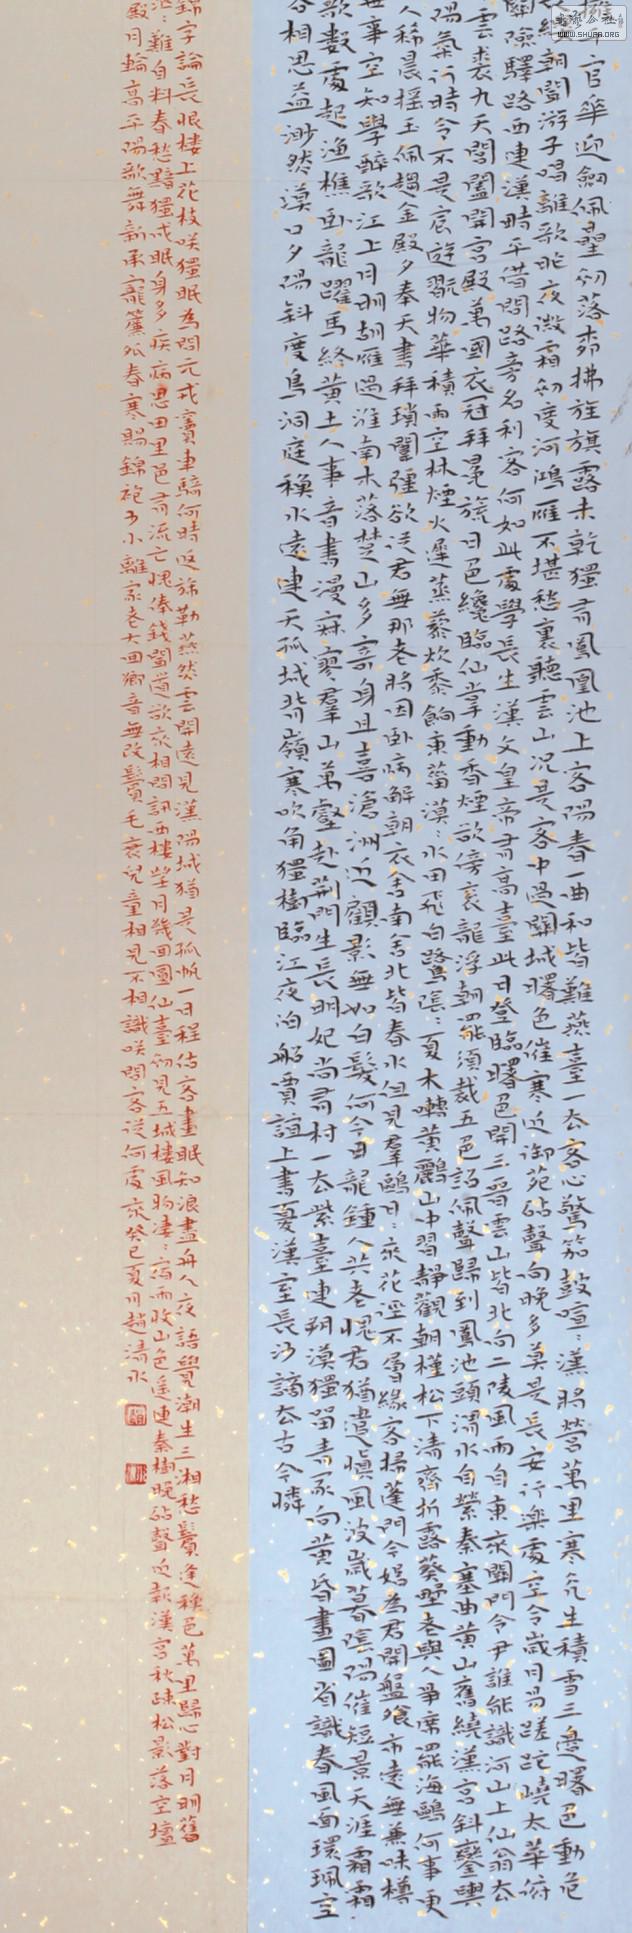 書法公社
WWW.SHUFA.ORG
擁千官華迎劍佩星初落柳拂旌旗露未乾獨有鳳凰池上客陽春一曲和皆難燕臺一去客心驚笳鼓喧〻漢將營萬里寒光生積雪三邊曙色動危
纓朝聞游子唱離歌昨夜微霜初度河鴻雁不堪愁裏聽雲山況是客中過關城曙色催寒近御苑砧聲向晚多莫是長安行樂處空令歲月易蹉跎嶢太華俯
關險驛路西連漢畤平借問路旁名利客何如此處學長生漢文皇帝有高臺此日登臨曙色開三晉雲山皆北向二陵風雨自東來關門令尹誰能識河上仙翁去
雲裘九天閶闔開宮殿萬國衣冠拜冕旒日色纔臨仙掌動香煙欲傍袞龍浮朝罷須裁五色詔佩聲歸到鳳池頭渭水自縈秦塞曲黃山舊繞漢宮斜鑾輿
陽氣行時令不是宸遊翫物華積雨空林煙火遲蒸藜炊黍餉東菑漠〻水田飛白鷺陰〻夏木囀黃鸝山中習靜觀朝槿松下清齋折露葵野老與人爭席罷海鷗何事更
人稀晨搖玉佩趨金殿夕奉天書拜瑣闈強欲從君無那老將因臥病解朝衣舍南舍北皆春水但見羣鷗日〻來花徑不曾緣客掃蓬門今始為君開盤飧市遠無兼味樽
無事空知學醉歌江上月明胡雁過淮南木落楚山多寄身且喜滄洲近顧影無如白髮何今日龍鍾人共老愧君猶遣慎風波歲暮陰陽催短景天涯霜
歌數處起漁樵臥龍躍馬終黃土人事音書漫寂寥羣山萬壑赴荊門生長明妃尚有村一去紫臺連朔漠獨留青冢向黃昏畫圖省識春風面環珮空
各相思益渺然漢口夕陽斜度鳥洞庭秋水遠連天孤城背嶺寒吹角獨樹臨江夜泊船賈誼上書憂漢室長沙謫去古今憐
錦字論長恨樓上花枝咲獨眠為問元戎竇車騎何時返旆勒燕然雲開遠見漢陽城猶是孤帆一日程估客晝眠知浪盡舟人夜語覺潮生三湘愁鬢逢秋色萬里歸心對月明舊
茫〻難自料春愁黯〻獨成眠身多疾病思田里邑有流亡愧俸錢聞道欲來相問訊西樓望月幾回圓仙臺初見五城樓風物淒〻宿雨收山色遙連秦樹晚砧聲近報漢宮秋疎松影落空壇
殿月輪高平陽歌舞新承寵簾外春寒賜錦袍少小離家老大回鄉音無改鬢毛衰兒童相見不相識咲問客從何處來癸巳夏月趙清水